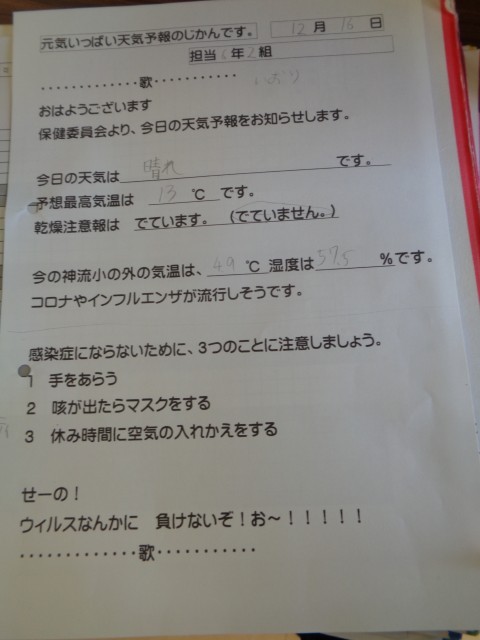 元気いっぱい天気予報のじかんです。 12月 16日
担当 6年2組
・・・・・・・・・・・・・歌・・・・・・・・・・・
おはようございます
保健委員会より、今日の天気予報をお知らせします。
今日の天気は 晴れ です。
予想最高気温は 13 ℃ です。
乾燥注意報は でています。 (でていません。)
今の神流小の外の気温は、 4.9 ℃ 湿度は 57.5 %です。
コロナやインフルエンザが流行しそうです。
感染症にならないために、3つのことに注意しましょう。
1 手をあらう
2 咳が出たらマスクをする
3 休み時間に空気の入れかえをする
せーの！
ウィルスなんかに 負けないぞ！お～！！！！！
・・・・・・・・・・・・・歌・・・・・・・・・・・